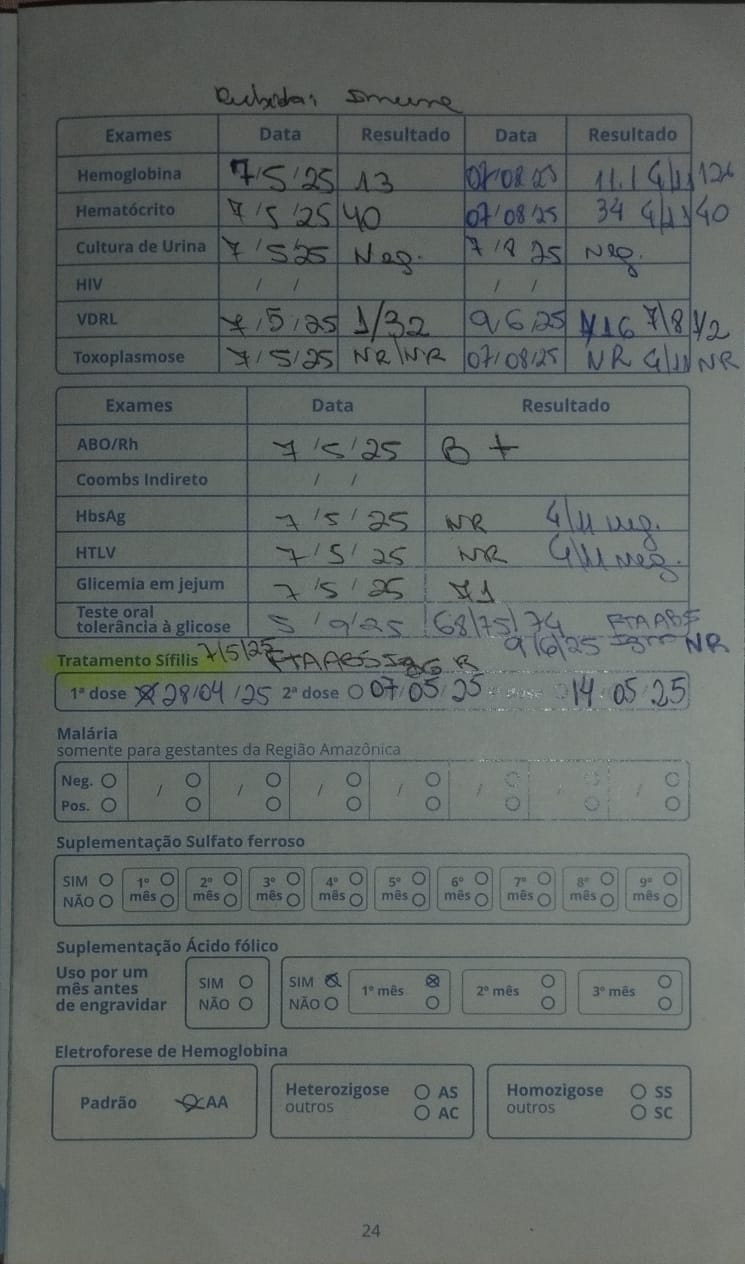 Rubéola: Imune
Exames Data Resultado Data Resultado
Hemoglobina 7/5/25 13 07/08/25 11.1 4/11 12
Hematócrito 7/5/25 40 07/08/25 34 4/11 40
Cultura de Urina 7/5/25 Neg. 7/8/25 Neg.
HIV / / / /
VDRL 7/5/25 1/32 9/6/25 1/16 7/8 1/2
Toxoplasmose 7/5/25 NR/NR 07/08/25 NR 4/11 NR
Exames Data Resultado
ABO/Rh 7/5/25 B +
Coombs Indireto / /
HbsAg 7/5/25 NR 4/11 neg.
HTLV 7/5/25 NR 4/11 neg.
Glicemia em jejum 7/5/25 71
Teste oral
tolerância à glicose 5/9/25 68/75/74 FTAABS
9/6/25 IgM NR
Tratamento Sífilis 7/5/25 FTAABS IgG R
1ª dose 28/04/25 2ª dose 07/05/25 dose 14/05/25
Malária
somente para gestantes da Região Amazônica
Neg. / / / / / / /
Pos.
Suplementação Sulfato ferroso
SIM 1º 2º 3º 4º 5º 6º 7º 8º 9º
NÃO mês mês mês mês mês mês mês mês mês
Suplementação Ácido fólico
Uso por um
mês antes
de engravidar
SIM
NÃO
SIM
NÃO
1º mês 2º mês 3º mês
Eletroforese de Hemoglobina
Padrão AA
Heterozigose AS
outros AC
Homozigose SS
outros SC
24